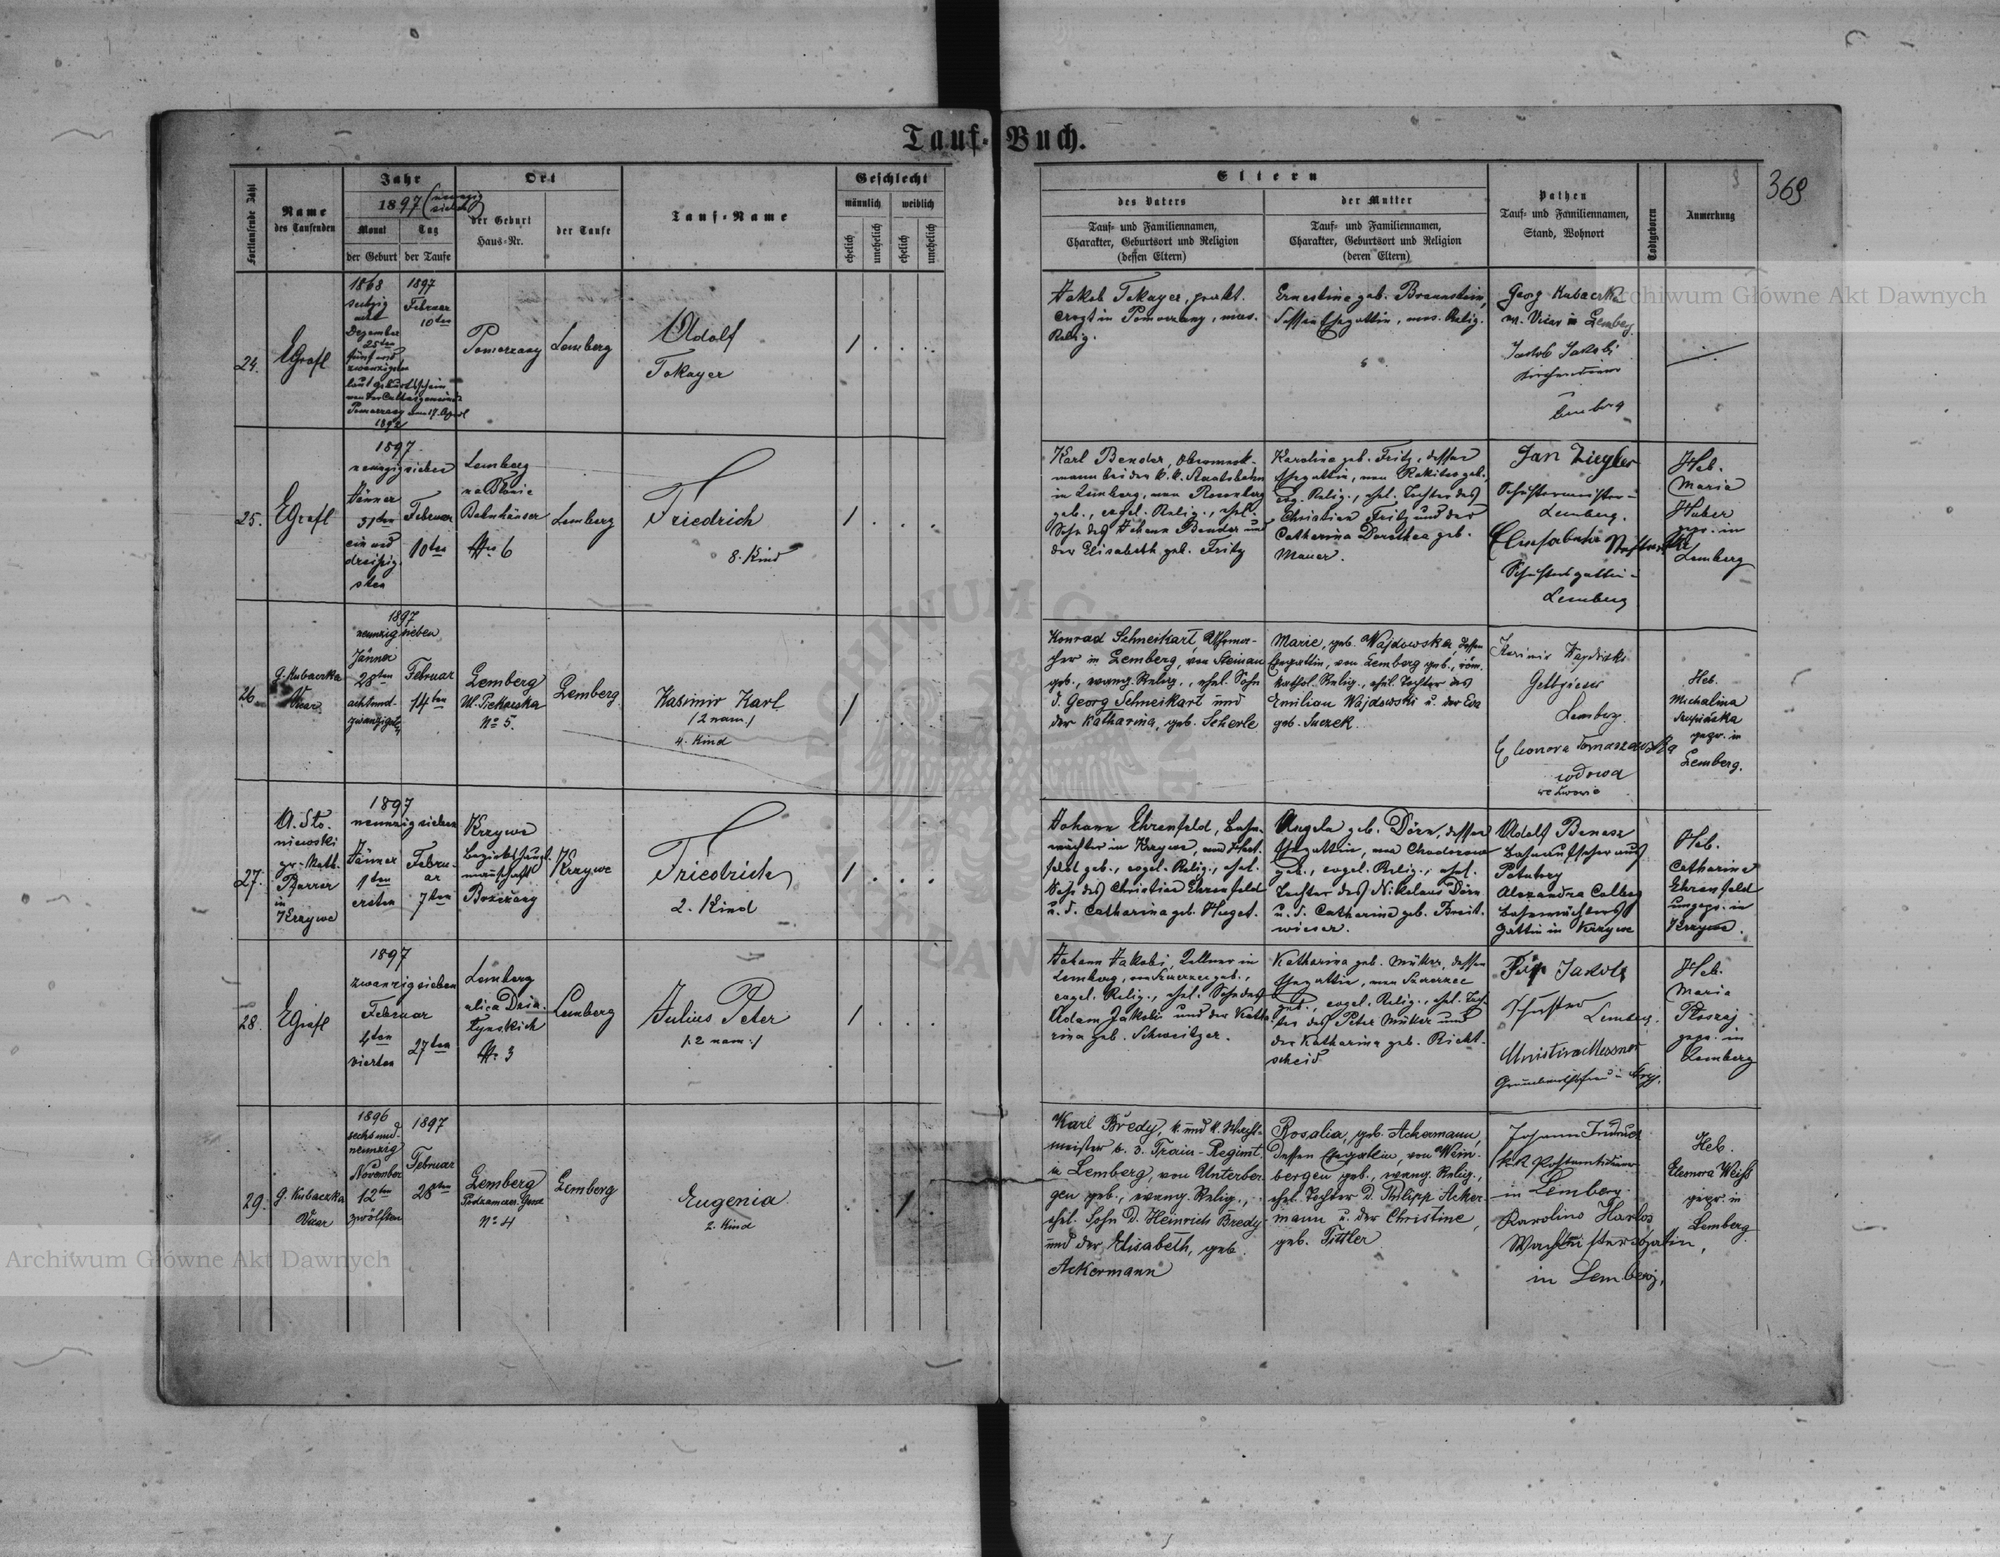 Tauf-Buch.
369
Fortlaufende Zahl
Name
des Taufenden
Jahr
1897
Monat
Tag
der Geburt
der Taufe
Ort
der Geburt
Haus-Nr.
der Taufe
Tauf-Name
Geschlecht
männlich
weiblich
ehelich
unehelich
ehelich
unehelich
Eltern
des Vaters
Tauf- und Familiennamen,
Charakter, Geburtsort und Religion
(dessen Eltern)
der Mutter
Tauf- und Familiennamen,
Charakter, Geburtsort und Religion
(deren Eltern)
Pathen
Tauf- und Familiennamen,
Stand, Wohnort
Todtgeboren
Anmerkung
24.
1868
Dezember
25ten
fünf und
zwanzigsten
laut Geburtsschein
von der Cultusgemeinde
Pomorzany vom 17. April
1897
Februar
10ten
Pomorzany
Lemberg
Adolf
Tokayer
1
Jakob Tokayer, prakt.
Arzt in Pomorzany, mos.
Relig.
Ernestine geb. Braunstein,
dessen Ehegattin, mos. Relig.
Georg Kubaczka
ev. Vicar in Lemberg.
Jakob Jakobi
Kirchendiener
Lemberg
25.
1897
neunzig sieben
Jänner
31ten
ein und
dreißig-
sten
Februar
10ten
Lemberg
na Błonie
Bahnhäuser
Nro 6
Lemberg
Friedrich
8. Kind
1
Karl Bender,
mann bei der k. k. Staatsbahn
in Lemberg, von Rosenberg
geb., evgl. Relig., ehel.
Sohn des Johann Bender und
der Elisabeth geb. Fritz
Karolina geb. Fritz, dessen
Ehegattin, von geb.,
evg. Relig., ehel. Tochter des
Christian Fritz und der
Catharina Dorothea geb.
Mauer.
Jan Ziegler
Schustermeister
Lemberg.
Schustersgattin
Lemberg
Heb.
Maria
Huber
gepr. in
Lemberg
26.
G. Kubaczka
Vicar.
1897
neunzig sieben
Jänner
28ten
achtund-
zwanzigsten
Februar
14ten
Lemberg
Ul. Piekarska
No 5.
Lemberg
Kasimir Karl
/2 nam./
4. Kind
1
Konrad Schneikart,
cher in Lemberg, von Steinau
geb., evang. Relig., ehel. Sohn
d. Georg Schneikart und
der Katharina, geb. Scherle
Marie, geb. Wajdowska, dessen
Ehegattin, von Lemberg geb., röm.
kathol. Relig., ehel. Tochter des
Emilian Wajdowski u. der Eva
geb. Suczek.
Gelbgiesser
Lemberg.
Eleonora Tomaszewska
wdowa
we Lwowie
Heb.
Michalina
gepr. in
Lemberg.
27.
A. Sto-
niewski
gr.-kath.
Pfarrer
in
Krzywe
1897
neunzig sieben
Jänner
1ten
ersten
Febru-
ar
7ten
Krzywe
Bezirkshaupt-
mannschaft
Brzeżany
Krzywe
Friedrich
2. Kind
1
Johann Ehrenfeld, Bahn-
wächter in Krzywe,
geb., evgel. Relig., ehel.
Sohn des Christian Ehrenfeld
u. d. Catharina geb. Huget.
Angela geb. Dörn, dessen
Ehegattin, von Chodorow
geb., evgel. Relig., ehel.
Tochter des Nikolaus Dörn
u. d. Catharina geb. Breit-
wieser.
Adolf Benesz
Bahnaufseher aus
Potutory
Alexandra
Bahnwächters
gattin in Krzywe
Heb.
Catharina
Ehrenfeld
ungepr. in
Krzywe.
28.
1897
neunzig sieben
Februar
4ten
vierten
27ten
Lemberg
ulica Dzia-
łyńskich
Nr. 3
Lemberg
Julius Peter
/:2 nam:/
1
Johann Jakobi, Kellner in
Lemberg, von Szczerzec geb.,
evgel. Relig., ehel. Sohn des
Adam Jakobi und der Katha-
rina geb. Schweitzer.
Katharina geb. Müller, dessen
Ehegattin, von Szczerzec
geb., evgel. Relig., ehel. Toch-
ter des Peter Müller und
der Katharina geb. Richt-
scheid
Filip Jakobi
Schuster
Lemberg.
Christina Messner
Heb.
Maria
gepr. in
Lemberg
29.
G. Kubaczka
Vicar
1896
sechs und
neunzig
November
12ten
zwölften
1897
Februar
28ten
Lemberg
No 4
Lemberg
Eugenia
2. Kind
1
Karl Bredy, k. und k. Wacht-
meister b. 3. Train-Regimt.
in Lemberg, von Unterber-
gen geb., evang. Relig.,
ehel. Sohn d. Heinrich Bredy
und der Elisabeth, geb.
Ackermann
Rosalia, geb. Ackermann,
dessen Ehegattin, von Wein-
bergen geb., evang. Relig.,
ehel. Tochter d. Philipp Acker-
mann u. der Christine,
geb. Tittler
Johann
k.k. Postamtsdiener
in Lemberg.
Karolina Harlos
Wachtmeistersgattin,
in Lemberg.
Heb.
Eleonora Weiß
gepr. in
Lemberg
Archiwum Główne Akt Dawnych
Archiwum Główne Akt Dawnych